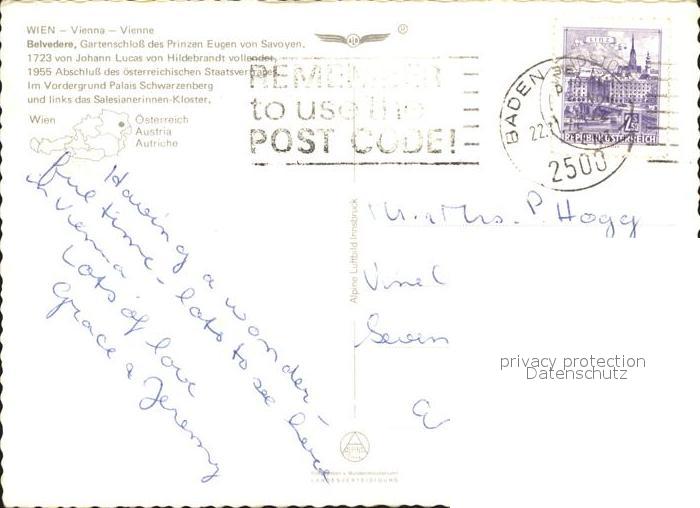 WIEN – Vienna – Vienne
Belvedere, Gartenschloß des Prinzen Eugen von Savoyen.
1723 von Johann Lucas von Hildebrandt vollendet,
1955 Abschluß des österreichischen Staatsvertrages.
Im Vordergrund Palais Schwarzenberg
und links das Salesianerinnen-Kloster.
Wien
Österreich
Austria
Autriche
REMEMBER
to use the
POST CODE!
LINZ
2S
REPUBLIK ÖSTERREICH
BADEN
22.
2500
Having a wonder-
ful time - lots to see here
in Vienna -
Lots of love
Grace & Jeremy
Alpine Luftbild Innsbruck
Mr. & Mrs. P. Hogg
Seven
privacy protection
Datenschutz
ALPINE
LANDESVERTEIDIGUNG